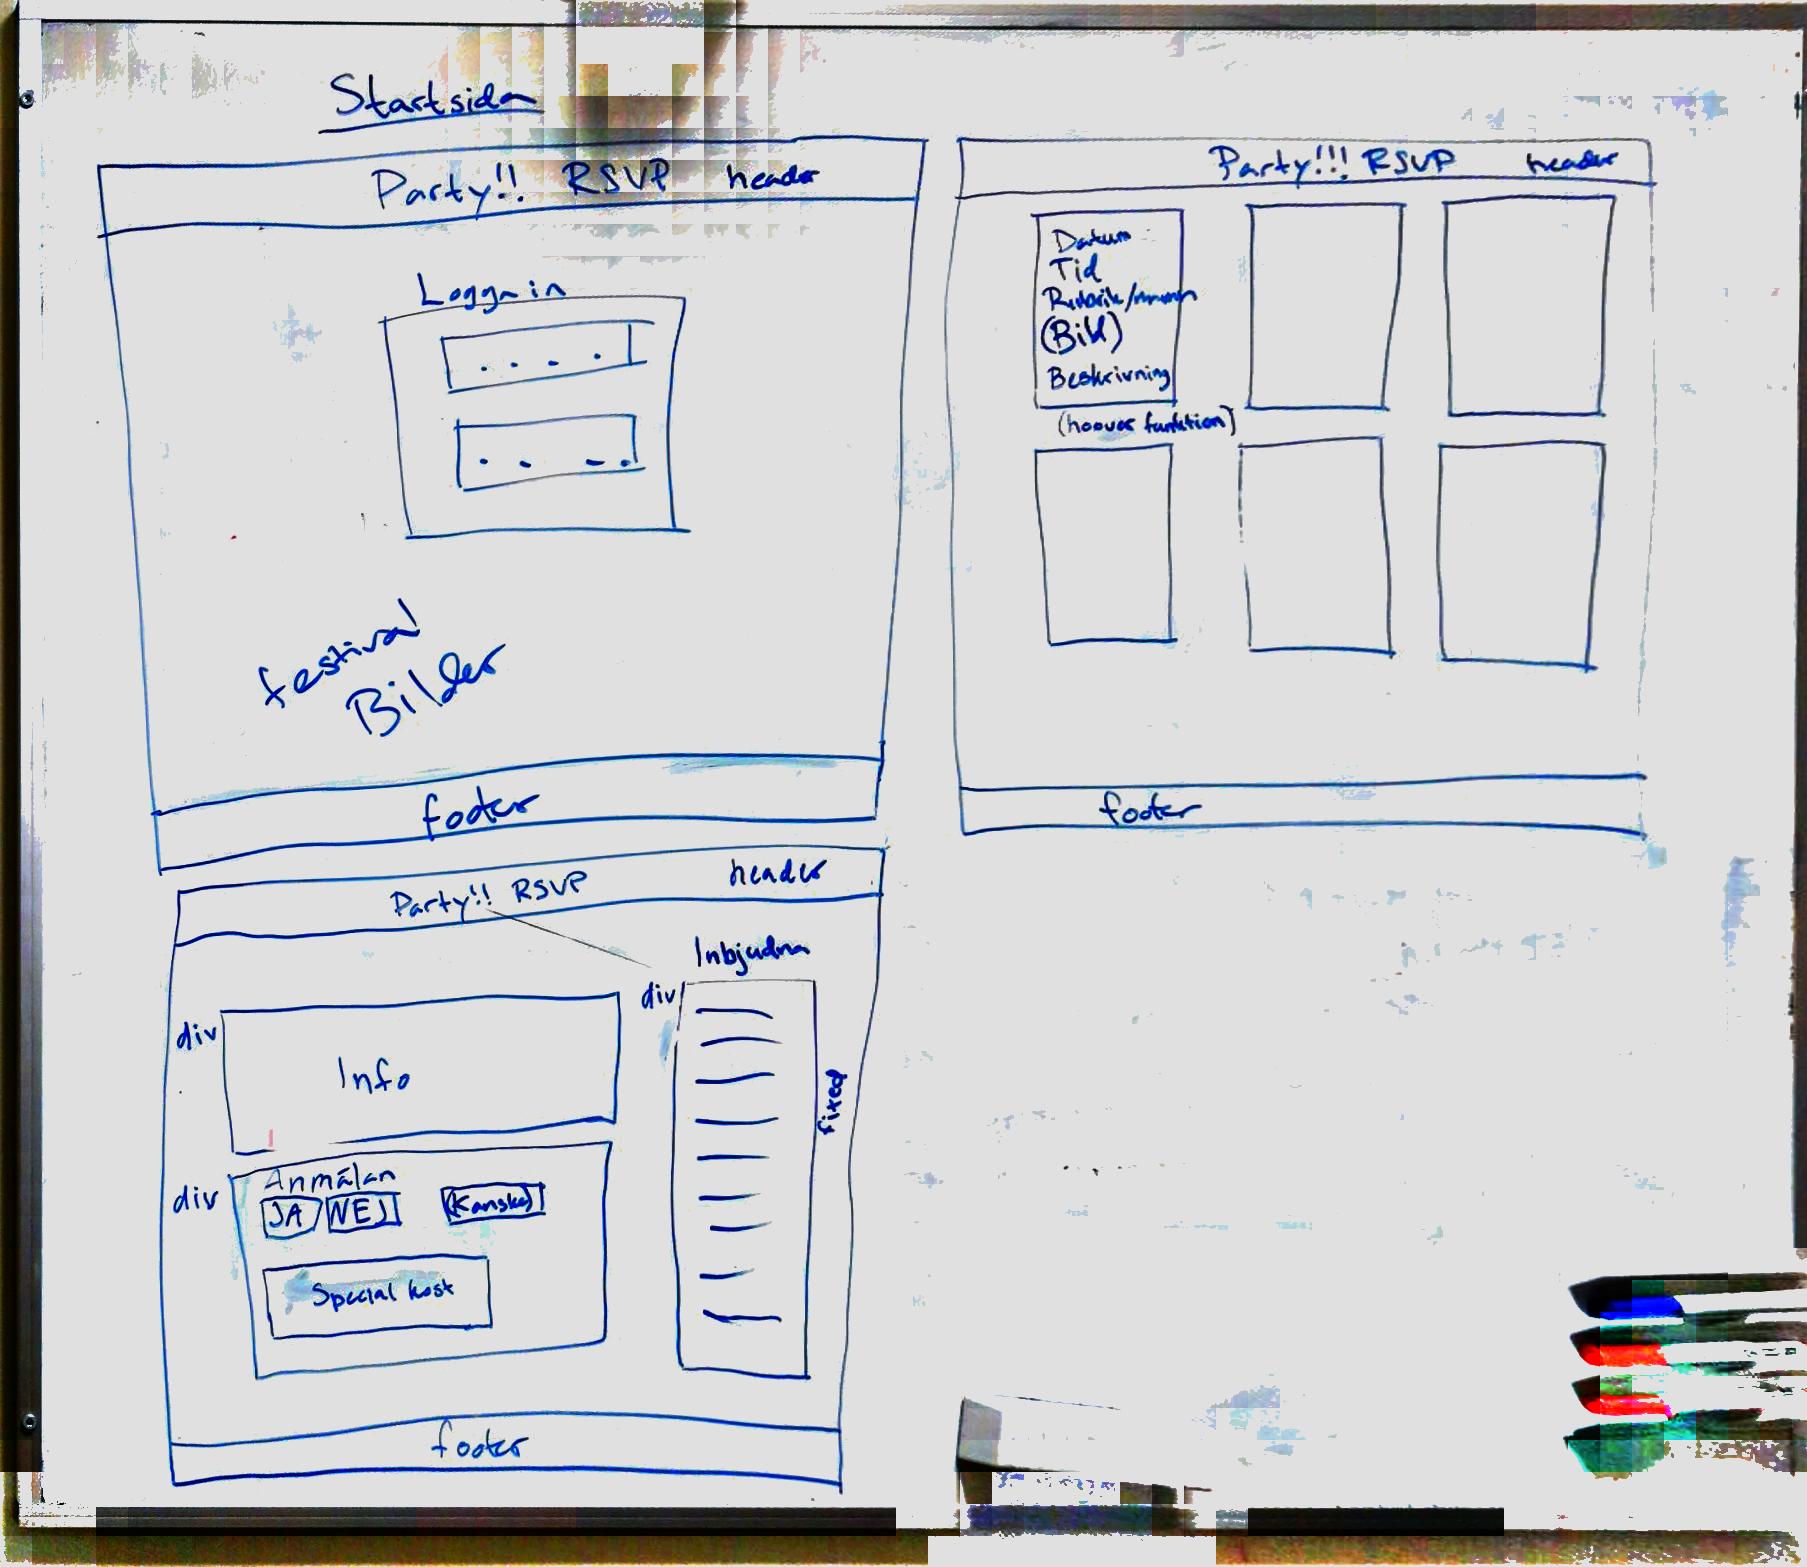 Startsida
Party!! RSVP header
Logga in
festival
Bilder
footer
Party!!! RSVP header
Datum
Tid
Rubrik/namn
(Bild)
Beskrivning
(hoover funktion)
footer
Party!! RSVP header
Inbjudna
div
div
Info
fixed
div
Anmälan
JA NEJ (Kanske)
Special kost
footer